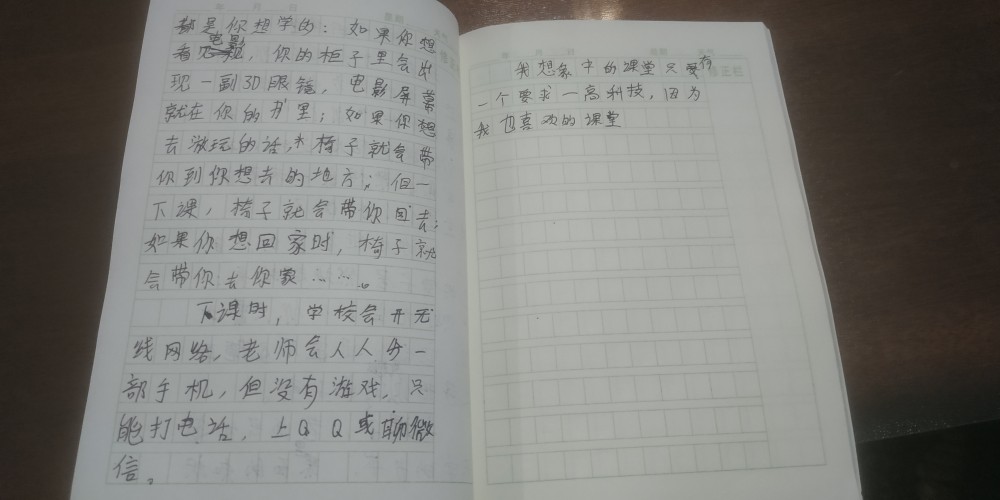 都是你想学的：如果你想
看电影，你的柜子里会出
现一副3D眼镜，电影屏幕
就在你的书里；如果你想
去游玩的话，椅子就会带
你到你想去的地方；但一
下课，椅子就会带你回去；
如果你想回家时，椅子就
会带你去你家……。
下课时，学校会开无
线网络，老师会人人分一
部手机，但没有游戏，只
能打电话，上QQ或聊微
信。
我想象中的课堂只要有
一个要求一高科技，因为
我也喜欢的课堂